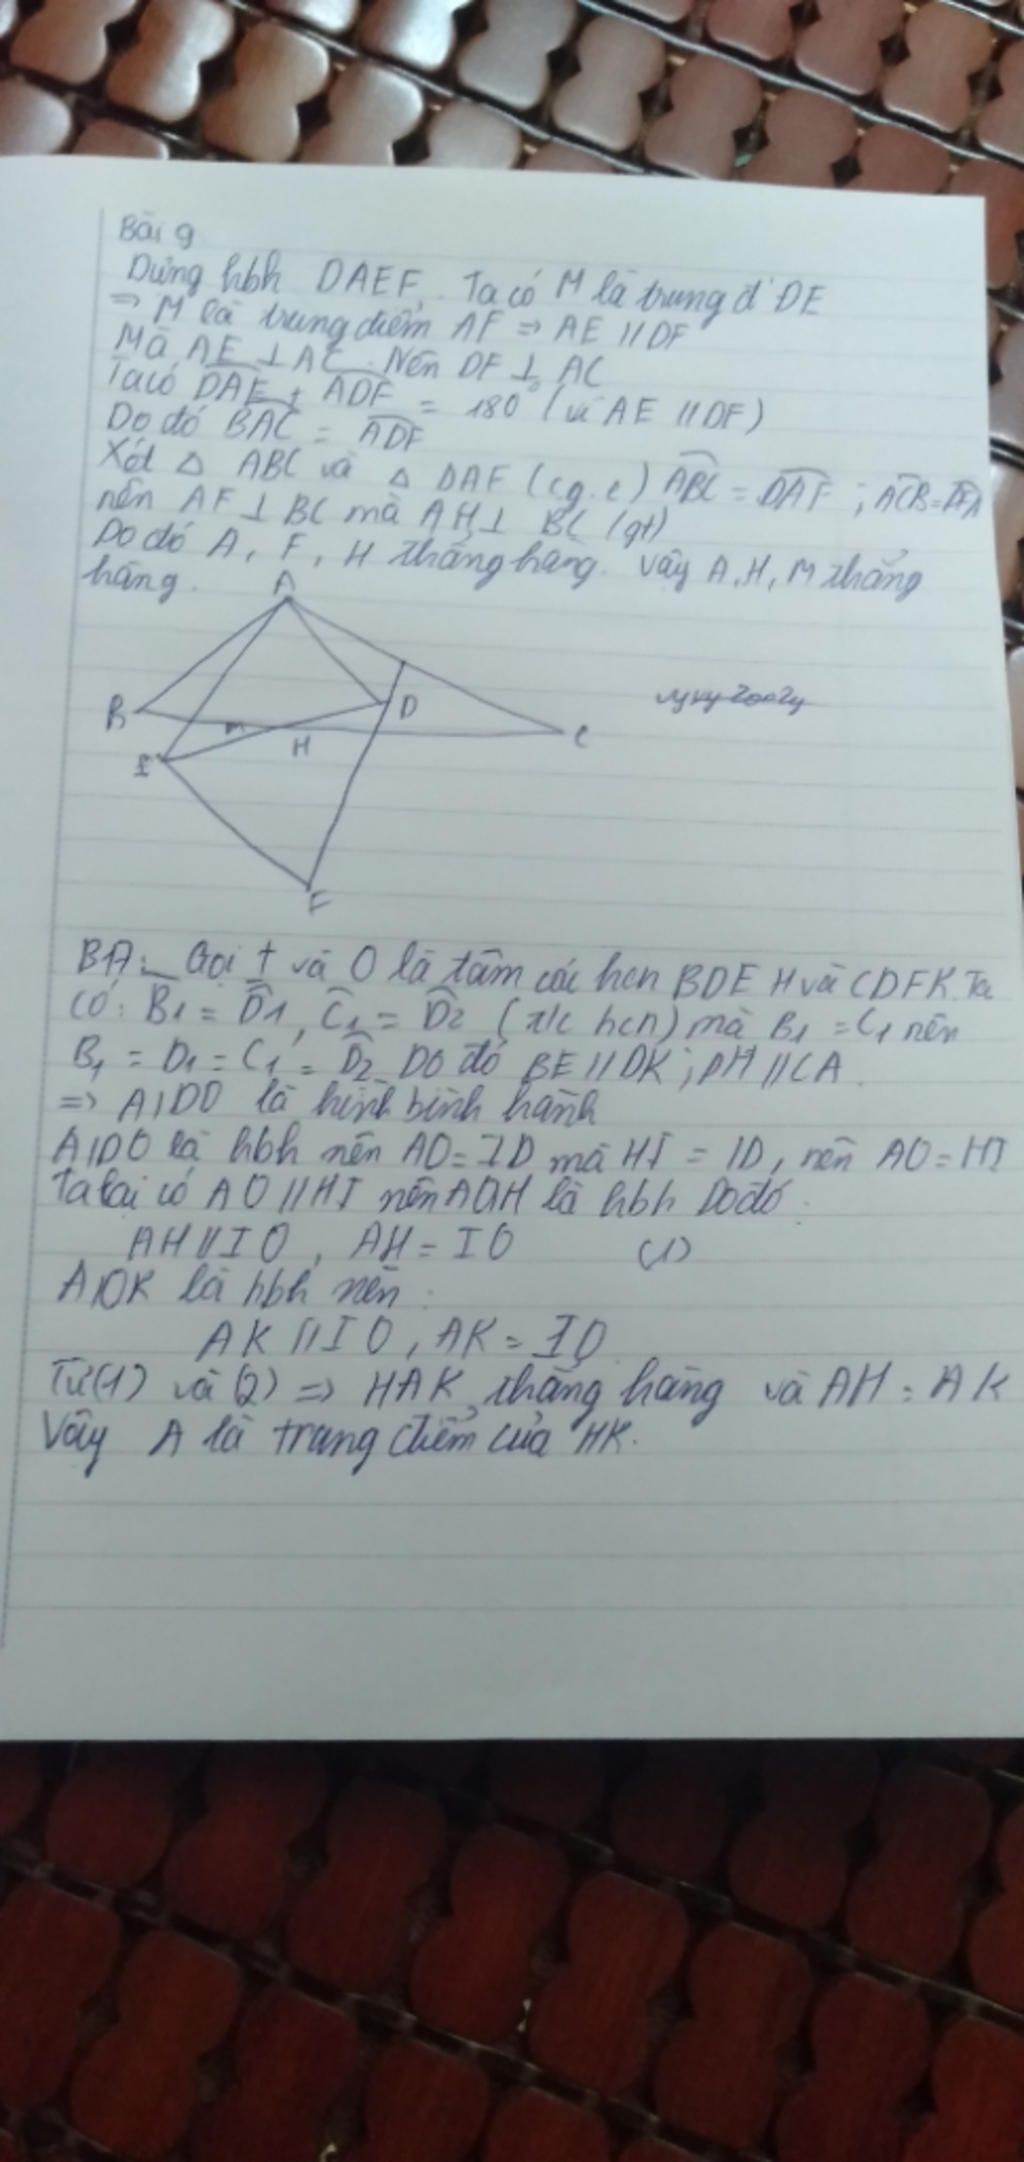 Bài 9
Dựng hbh DAEF. Ta có M là trung đ' DE
=> M là trung điểm AF => AE // DF
Mà AE ⊥ AC. Nên DF ⊥ AC
Ta có DAE + ADF = 180° (vì AE // DF)
Do đó BAC = ADF
Xét △ ABC và △ DAF (c.g.c) ABC = DAF ; ACB = DFA
nên AF ⊥ BC mà AH ⊥ BC (gt)
Do đó A, F, H thẳng hàng. Vậy A, H, M thẳng
hàng.
A
B
D
M
H
C
E
F
B17: Gọi I và O là tâm các hcn BDEH và CDFK. Ta
có: B1 = D1, C1 = D2 (t/c hcn) mà B1 = C1 nên
B1 = D1 = C1 = D2 Do đó BE // DK ; DH // CA
=> AIDO là hình bình hành
AIDO là hbh nên AO = ID mà HI = ID, nên AO = HI
Ta lại có AO // HI nên AOIH là hbh Do đó:
AH // IO, AH = IO (1)
AIOK là hbh nên:
AK // IO, AK = IO
Từ (1) và (2) => HAK thẳng hàng và AH = AK
Vậy A là trung điểm của HK.